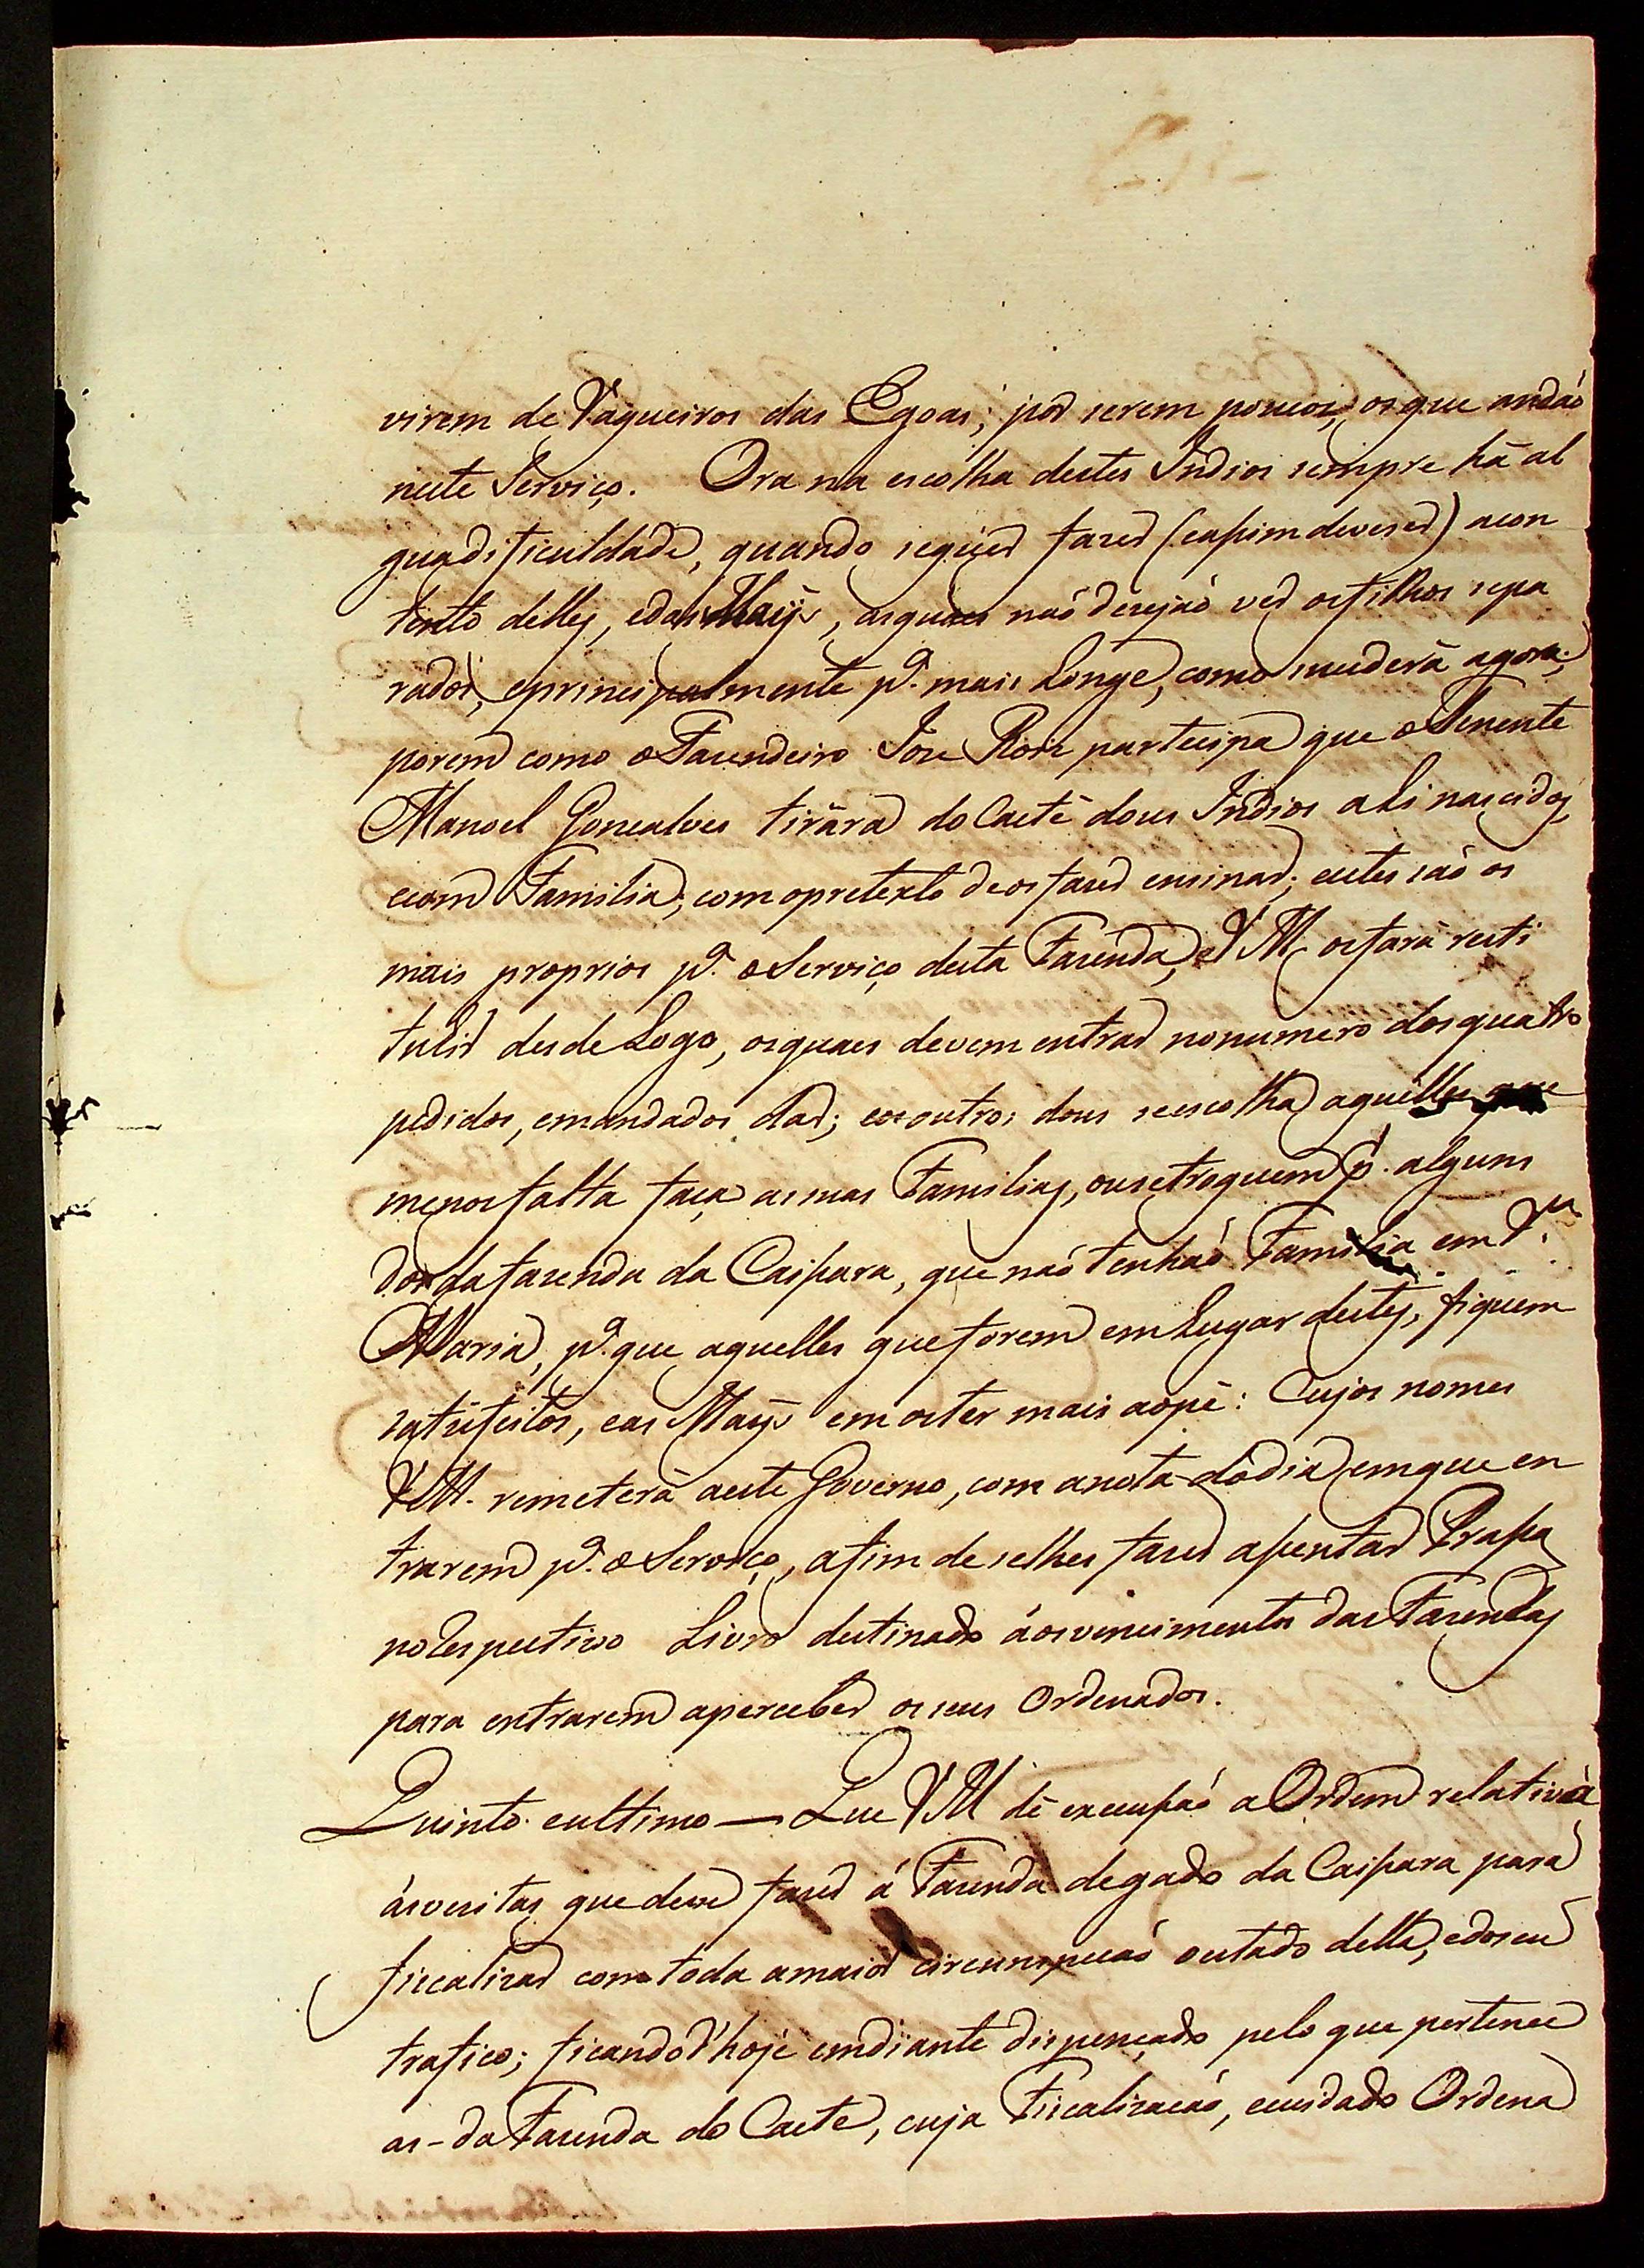 virem de Vaqueiros das Egoas; por serem poucos, os que andaõ
neste Serviço. Ora na escolha destes Indios sempre há al
gua dificuldade, quando se quer fazer (e assim deve ser) acon
tento delles, e das Maÿs, as quaes naõ desejaõ ver os filhos sepa
rados, e principalmente pª. mais Longe, como suuderá agora;
porem como o Fazendeiro Joze Roiz partecipa que o Tenente
Manoel Gonçalves tirára do Caeté dous Indios ali nascidos,
e com Familia; com o pretexto de os fazer ensinar; estes saõ os
mais proprios pª. o Serviço desta Fazenda, e VM. os fará resti
tuhir desde Logo, os quaes devem entrar no numero dos quatro
pedidos, e mandados dar; e os outros dous se escolha aquelles que
menos falta faça as suas Familias, ou se troquem pʳ. alguns
dos da fazenda da Caissara, que naõ tenhaõ Familia em Vª.
Maria, pª. que aquelles que forem em Lugar destes, fiquem
satisfeitos, e as Maÿs em os ter mais aopé: Cujos nomes
VM. remeterá a este Governo, com a nota do dia em que en
trarem pª. o Serviço, afim de se lhes fazer assentar Prassa
no Respectivo Livro destinado áos vencimentos das Fazendas
para entrarem a perceber os seus Ordenados.
Quinto e ultimo — Que VM dê execussaõ a Ordem relativa
ás vezitas que deve fazer á Fazenda de gado da Caissara para
fiscalizar com toda a maior circunspecaõ o estado della, e do seu
trafico; ficando d'hoje em diante dispençado pelo que pertence
as - da Fazenda do Caeté, cuja Fiscalizacaõ, e cuidado Ordena